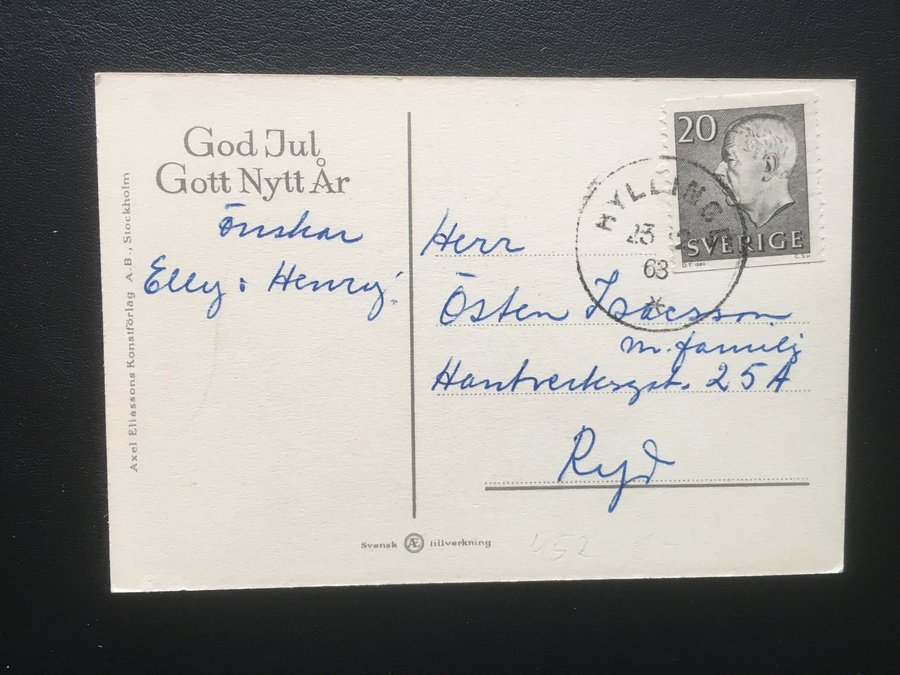 God Jul
Gott Nytt År
önskar
Elly o Henry.
Axel Eliassons Konstförlag A.B., Stockholm
20
SVERIGE
HYLLINGE
23 12
63
*
Herr
Östen Isacsson
m. familj
Hantverksgat. 25A
Ryd
Svensk Æ tillverkning
452